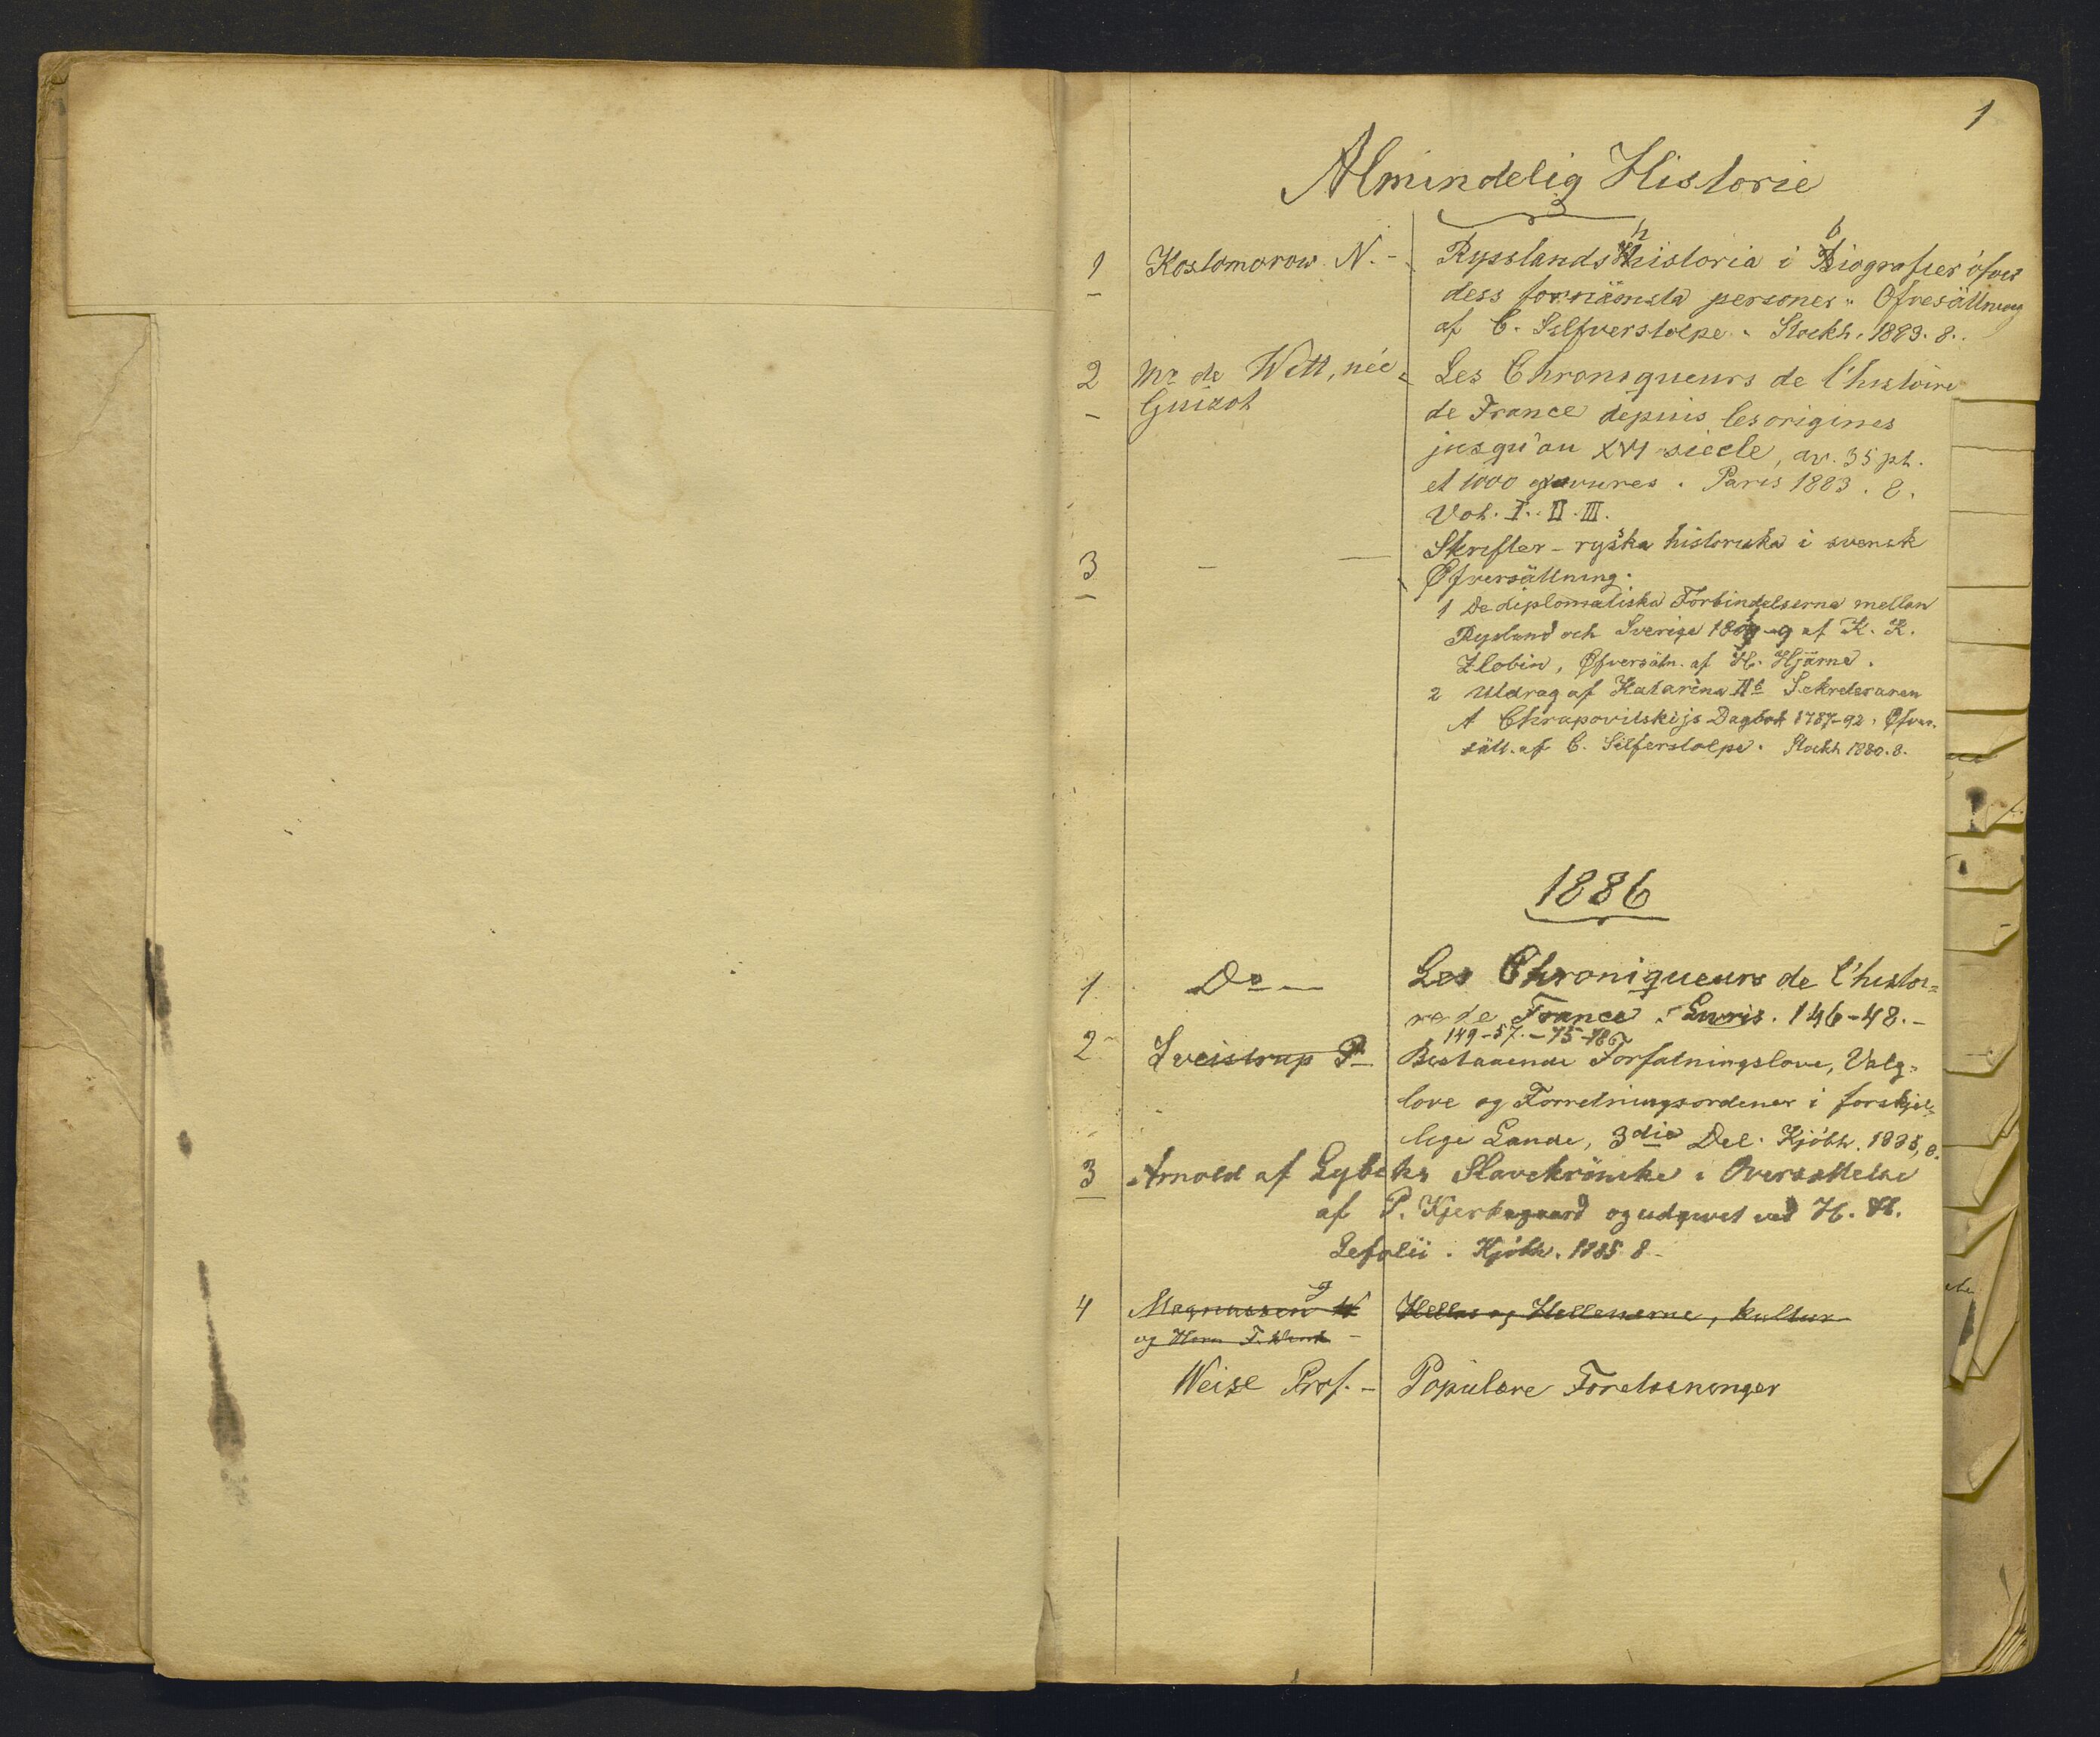 1
Almindelig Historie
1 Kostomarow N. - Rysslands historia i biografier öfver
dess fornämsta personer. Ofresättning
af C. Silfverstolpe. Stockh. 1883. 8.
2 Mr de Witt, née Les Chroniqueurs de l'histoire
Guizot de France depuis les origines
jusqu'au XVI siecle, av. 35 pl.
et 1000 gravures. Paris 1883. 8.
Vol. I. II. III.
3 - - Skrifter - ryska historiska i svensk
Øfversättning.
1 De diplomatiska Förbindelserna mellan
Rysland och Sverige af K. K.
Zlobin, Øfversätn. af H. Hjärne.
2 Utdrag af Katarina IIs Sekreteraren
A Chrapovitskijs Dagbok 1787-92. Øfver.
sätt. af C. Silferstolpe. Stockh 1880. 8.
1886
1 Do — Les Chroniqueurs de l'histoi=
re de France. Livris. 146-48. -
149-57. - 75-186
2 Sveistrup P - Bestaaende Forfatningslove, Valg=
love og Forretningsordener i forskjel=
lige Lande, 3die Del. Kjöbh. 1885, 8.
3 Arnold af Lybeks Slavekrönike i Oversættelse
af P. Kjerkegaard og udgivet ved H. H.
Lefolii. Kjöbh. 1885 8 -
4 Magnussen J
og Horn F. Wink - Hellas og Hellenerne, Kultur
Weise Prof. - Populære Forelæsninger